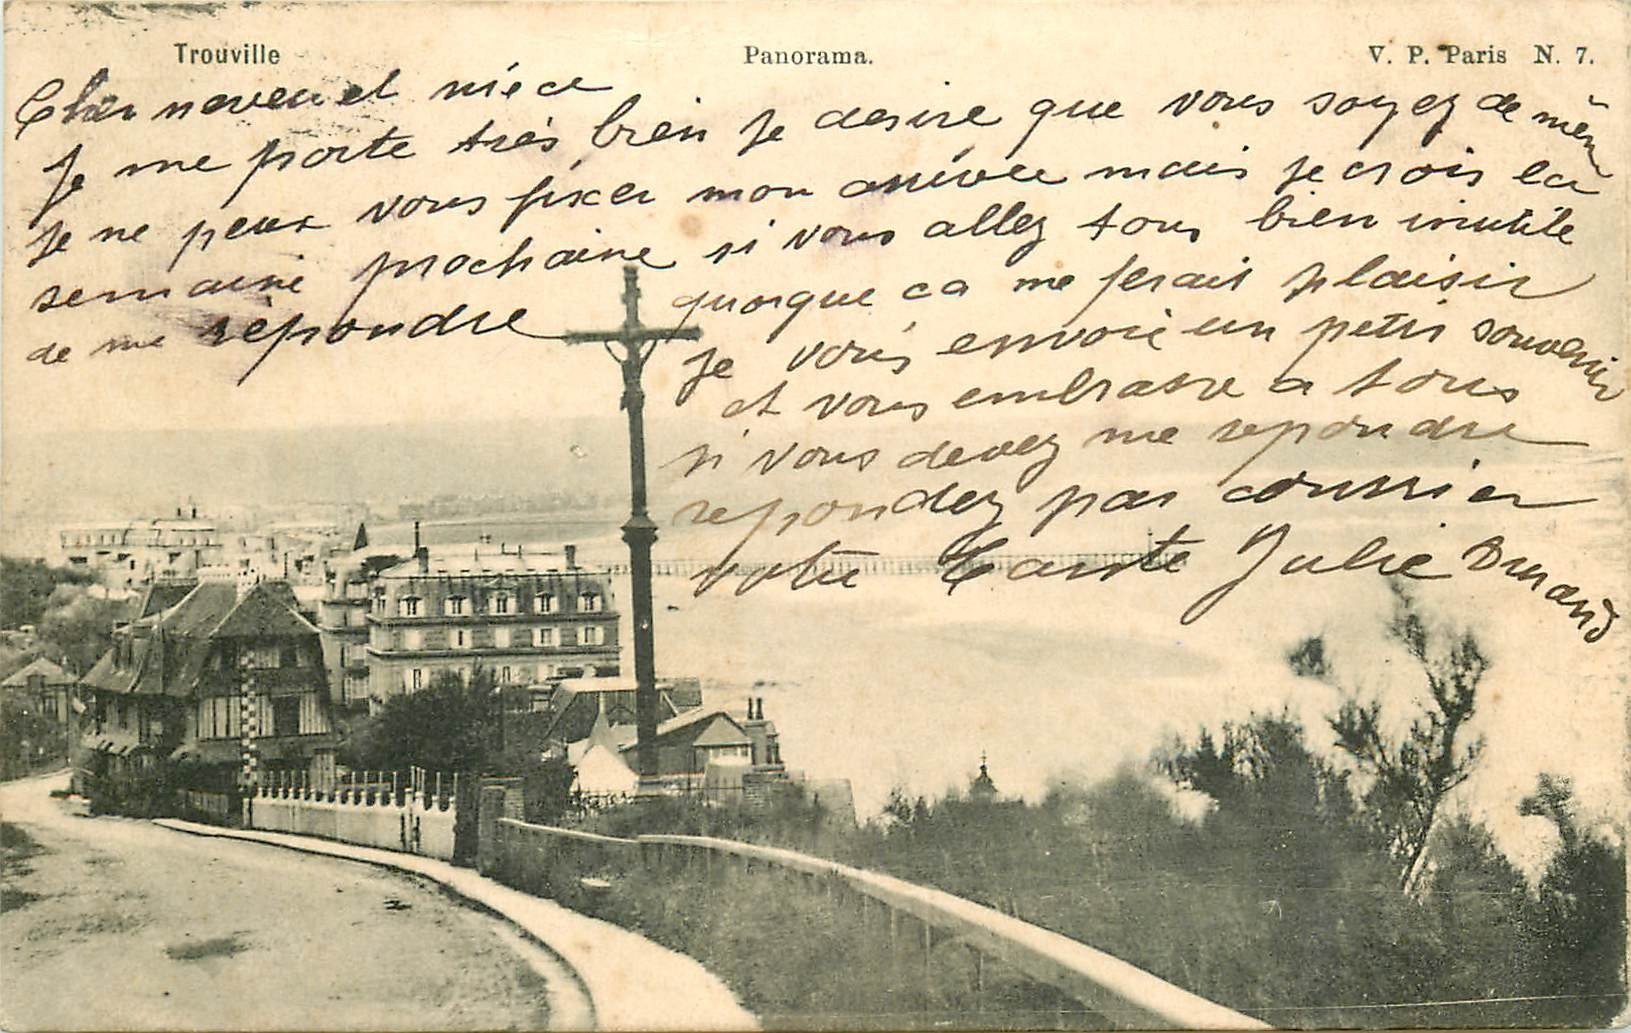 Trouville
Panorama.
V. P. Paris N. 7.
Cher neveu et niéce
Je me porte très bien je desire que vous soyez de mêm
je ne peux vous fixer mon arrivée mais je crois la
semaine prochaine si vous allez tous bien inutile
de me répondre quoique ca me ferait plaisir
je vous envoie un petit souvenir
et vous embrasse a tous
si vous devez me repondre
repondez par courrier
votre Tante Julie Durand